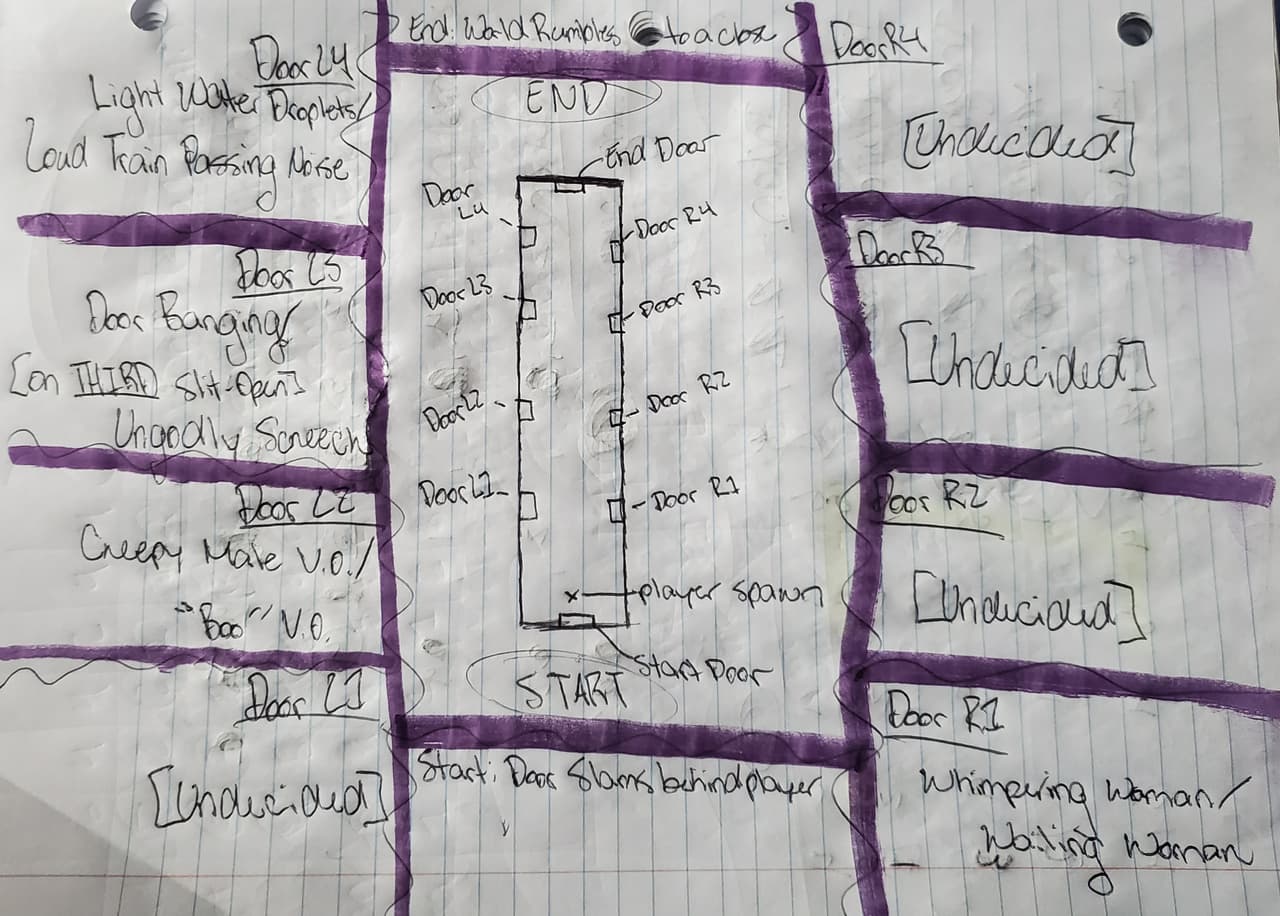 End: World Rumbles to a close
Door L4
Light Water Droplets/
Loud Train Passing Noise
Door L3
Door Banging/
[on THIRD Slit-Open]
Ungodly Screech
Door L2
Creepy Male V.O./
"Boo" V.O.
Door L1
[Undecided]
END
End Door
Door
L4
Door R4
Door L3
Door R3
Door L2
Door R2
Door L1
Door R1
x
player spawn
Start Door
START
Start: Door Slams behind player
Door R4
[Undecided]
Door R3
[Undecided]
Door R2
[Undecided]
Door R1
Whimpering Woman/
Wailing Woman